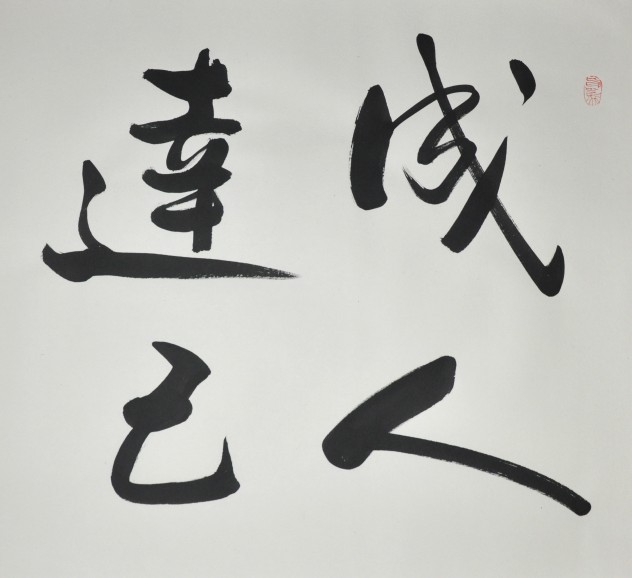 成人
達己